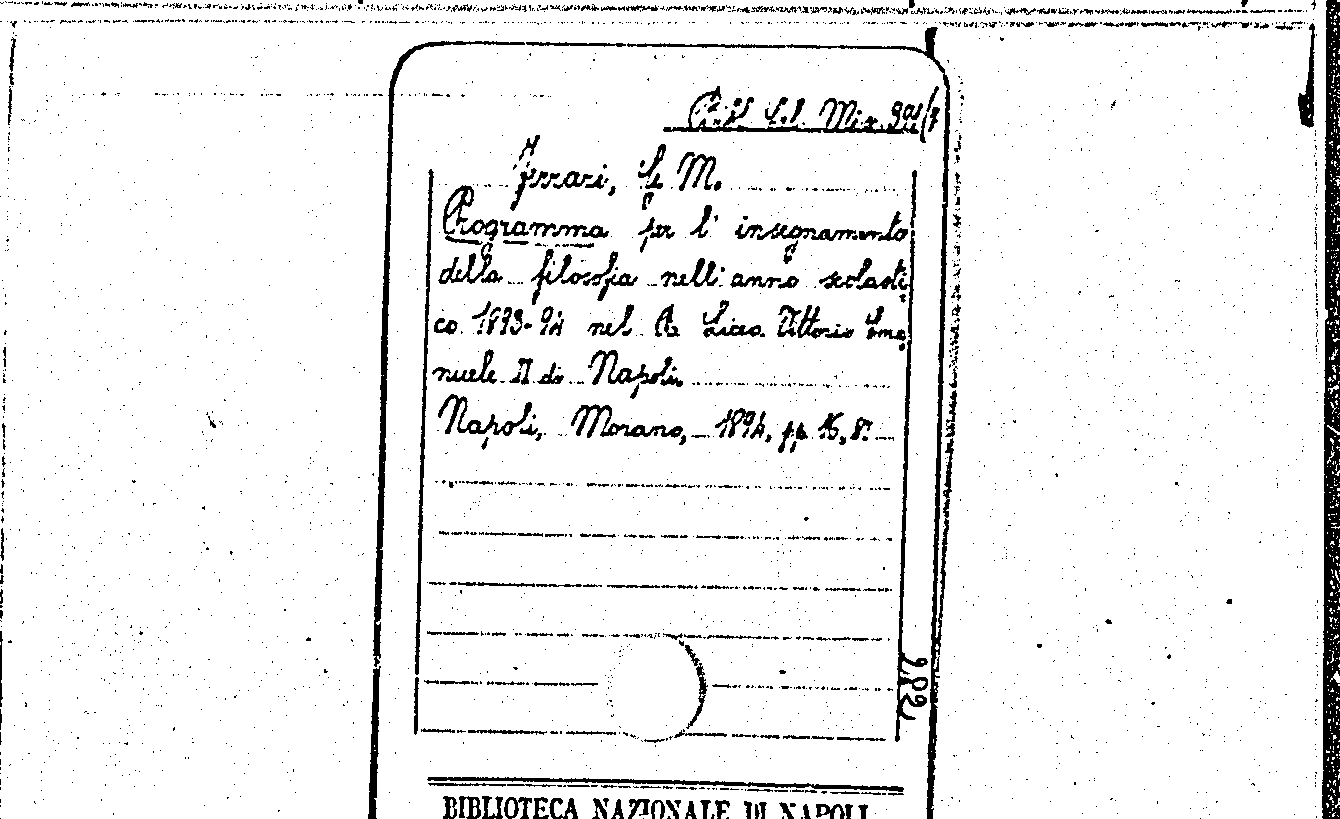 Misc. 
Ferrari, G. M.
Programma per l'insegnamento
della filosofia nell'anno scolasti-
co 1893-94 nel R. Liceo Vittorio Ema-
nuele II di Napoli.
Napoli, Morano, 1894, pp. 16, 8°
BIBLIOTECA NAZIONALE DI NAPOLI